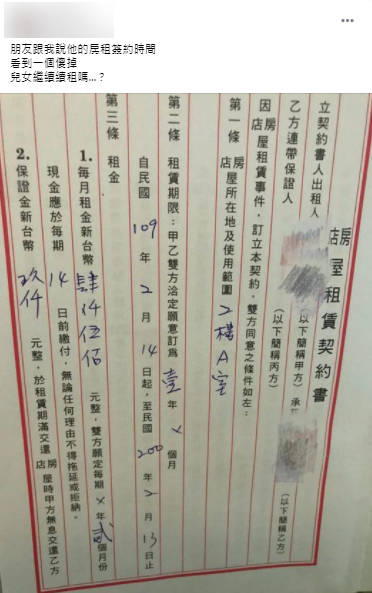 朋友跟我說他的房租簽約時間
看到一個傻掉
兒女繼續續租嗎...？
店房屋租賃契約書
立契約書人出租人 (以下簡稱甲方) 承 (以下簡稱乙方)
乙方連帶保證人 (以下簡稱丙方)
因店房屋租賃事件，訂立本契約，雙方同意之條件如左：
第一條 店房屋所在地及使用範圍 2樓A室
第二條 租賃期限：甲乙雙方洽定願意訂為 壹 年 × 個月
自民國 109 年 2 月 14 日起，至民國 200 年 2 月 13 日止
第三條 租金
1. 每月租金新台幣 肆仟伍佰 元整，雙方願定每期 × 年 貳 個月份
現金應於每期 14 日前繳付，無論任何理由不得拖延或拒納。
2. 保證金新台幣 玖仟 元整，於租賃期滿交還店房屋時甲方無息交還乙方